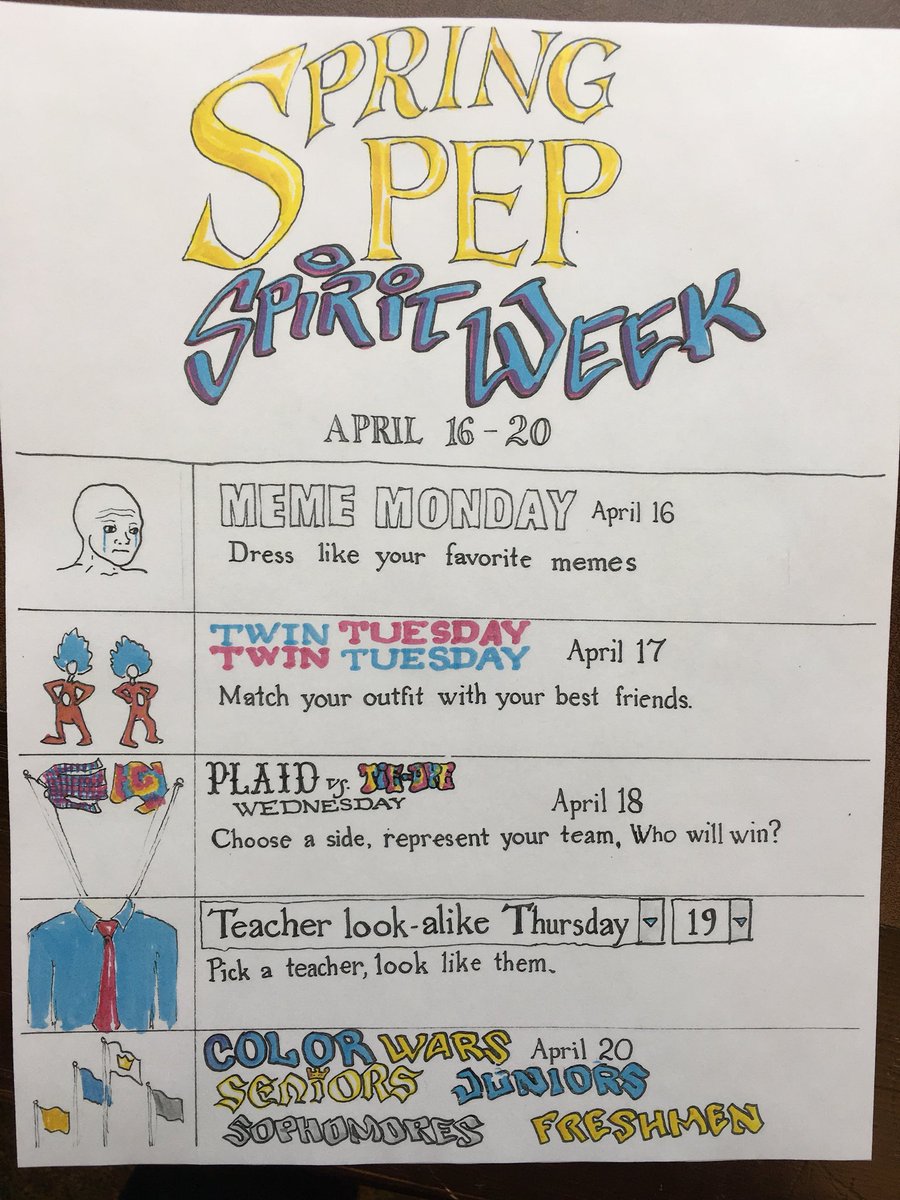 SPRING
PEP
SPIRIT WEEK
APRIL 16-20
MEME MONDAY April 16
Dress like your favorite memes
TWIN TUESDAY
TWIN TUESDAY April 17
Match your outfit with your best friends.
PLAID vs. TIE-DYE
WEDNESDAY April 18
Choose a side, represent your team, Who will win?
Teacher look-alike Thursday 19
Pick a teacher, look like them.
COLOR WARS April 20
SENIORS JUNIORS
SOPHOMORES FRESHMEN